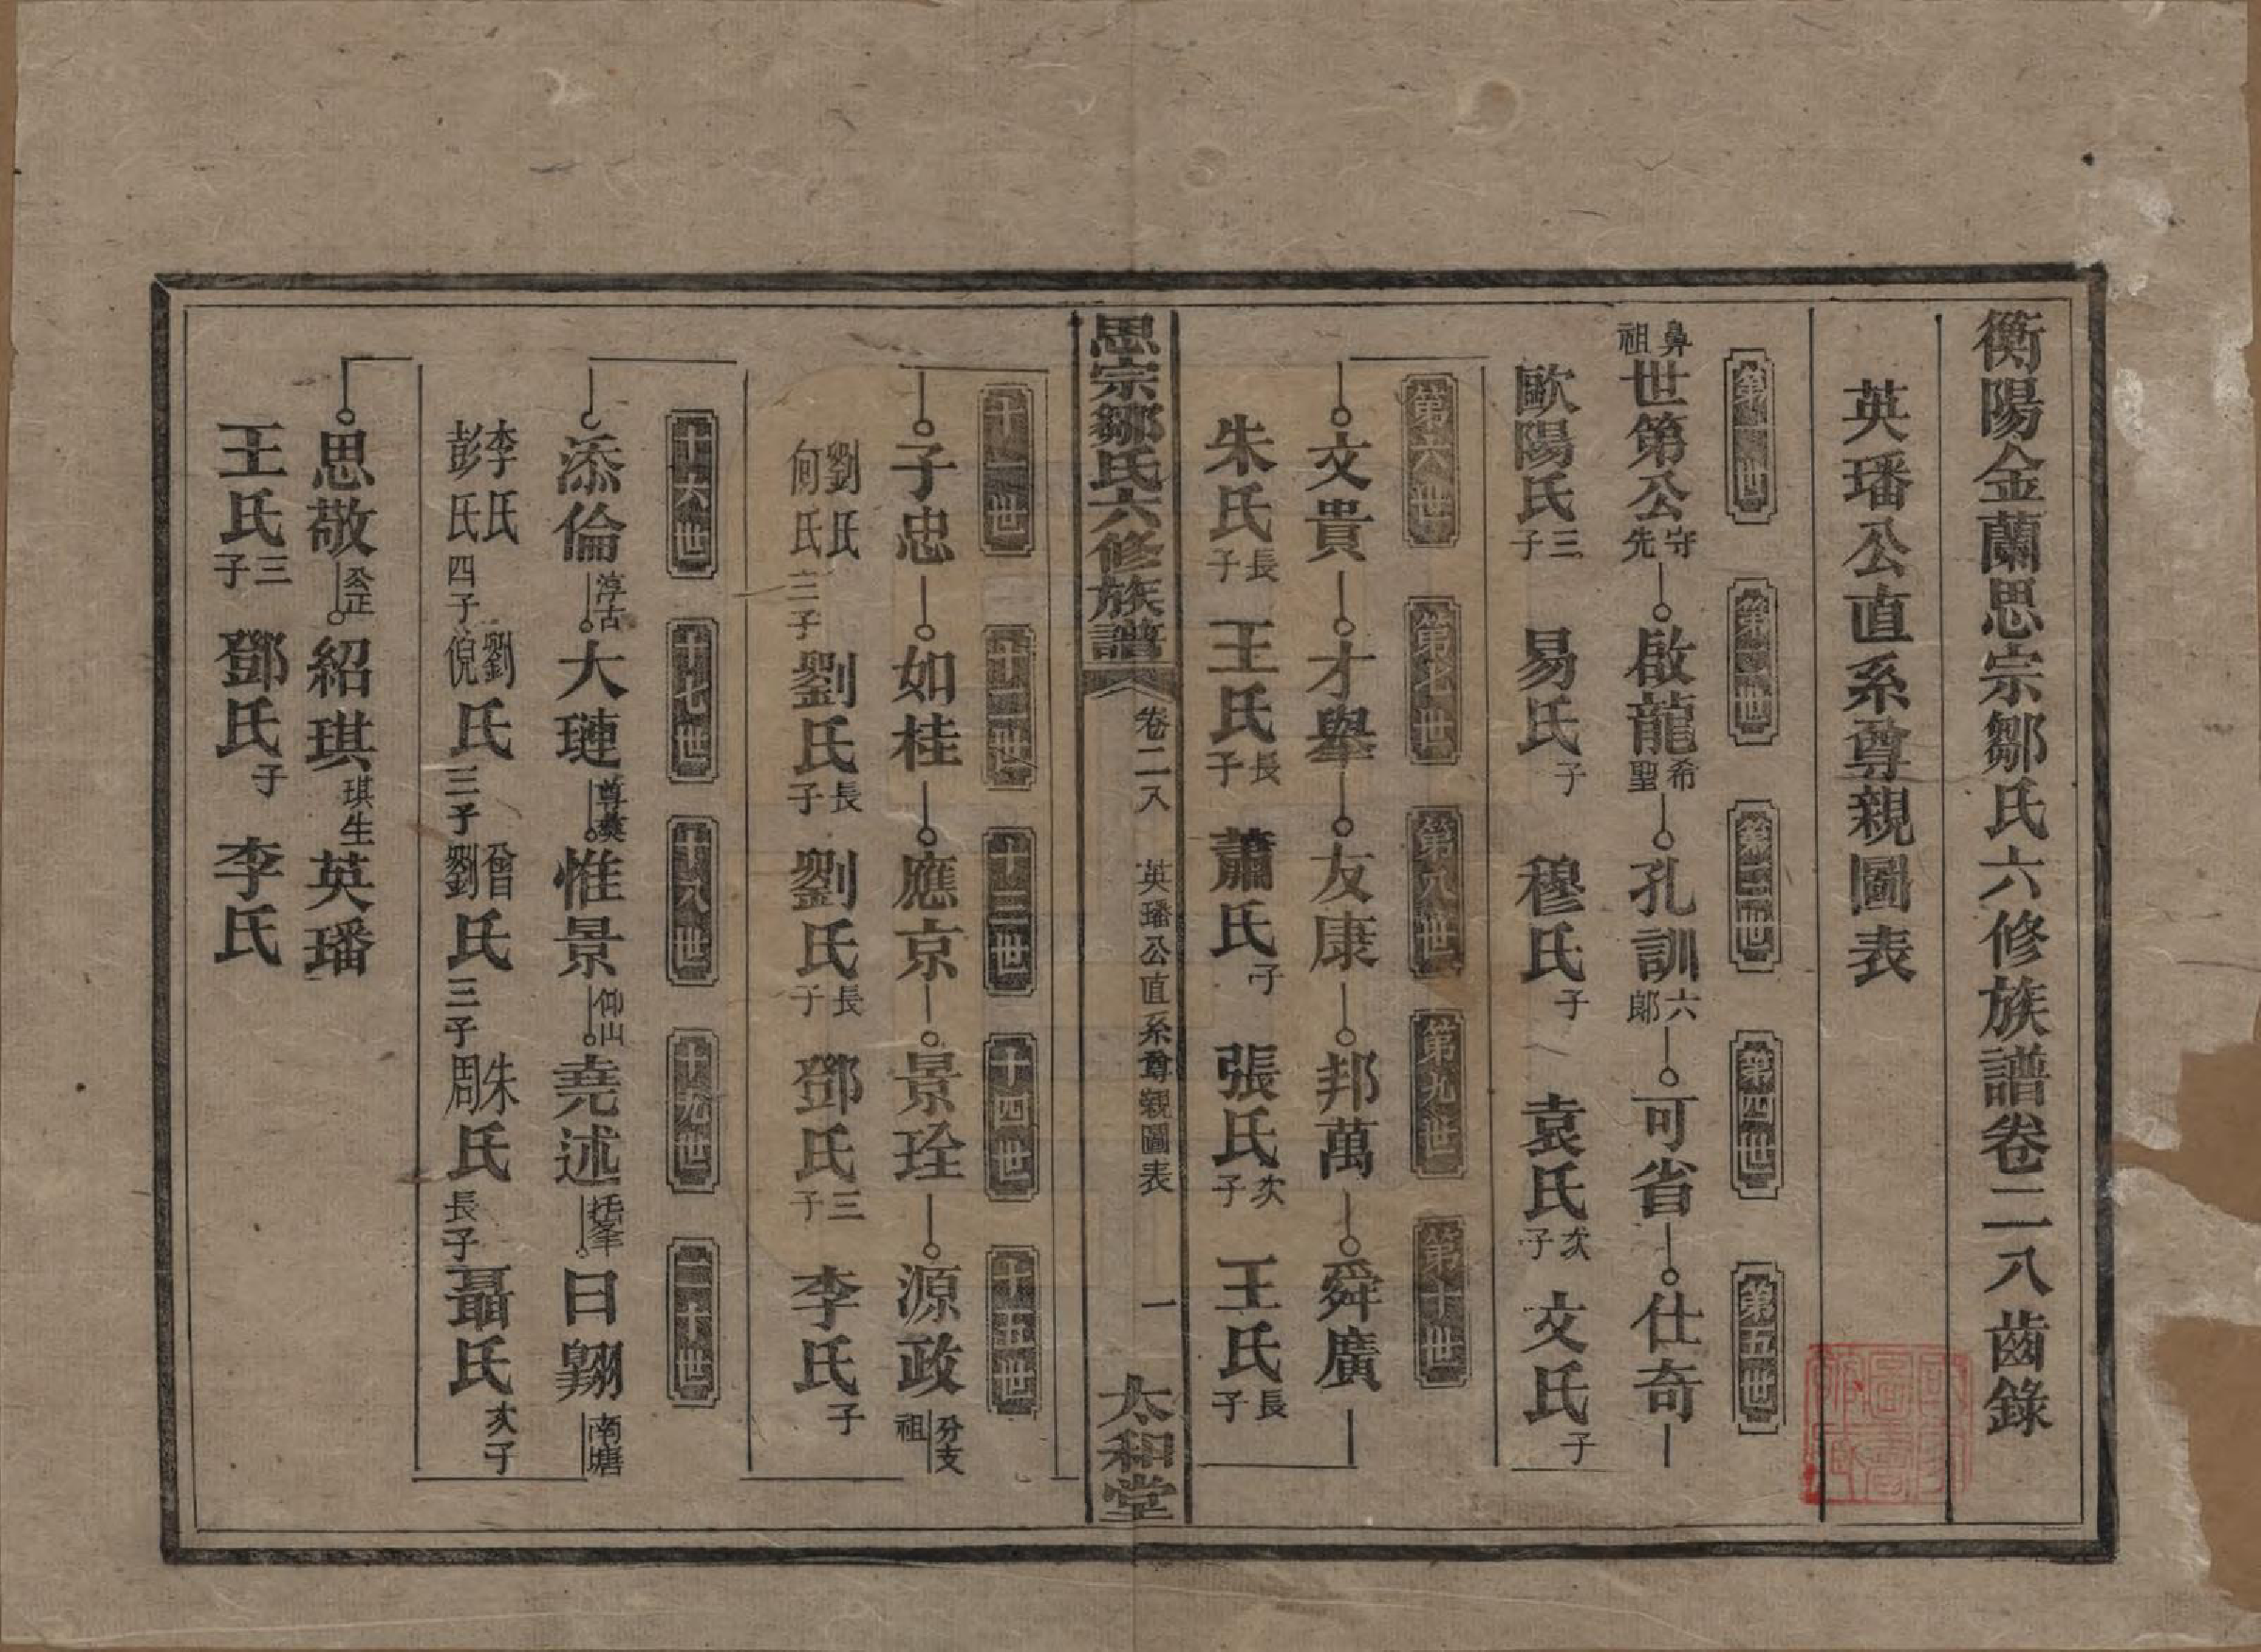 衡陽金蘭思宗鄒氏六修族譜卷二八齒錄
英璠公直系尊親圖表
第一世 第二世 第三世 第四世 第五世
鼻祖 世第公 守先 啟龍 希聖 孔訓 六郎 可省 仕奇
歐陽氏 三子 易氏 子 穆氏 子 袁氏 次子 文氏 子
第六世 第七世 第八世 第九世 第十世
文貴 才舉 友康 邦萬 舜廣
朱氏 長子 王氏 長子 蕭氏 子 張氏 次子 王氏 長子
思宗鄒氏六修族譜 卷二八 英璠公直系尊親圖表 一 太和堂
十一世 十二世 十三世 十四世 十五世
子忠 如桂 應京 景珍 源政 分支祖
劉氏 何氏 三子 劉氏 長子 劉氏 長子 鄧氏 三子 李氏 子
十六世 十七世 十八世 十九世 二十世
添倫 淳古 大璉 尊奠 惟景 仰山 堯述 括峯 日翱 南塘
李氏 彭氏 四子 劉倪氏 三子 曾劉氏 三子 朱周氏 長子 聶氏 次子
思敬 公正 紹琪 琪生 英璠
王氏 三子 鄧氏 子 李氏